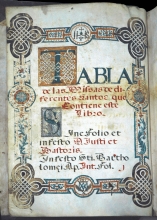 TABLA
de las Missas de di-
ferentes santos que
Contiene este
Libro.
Inc Folio et
infesto S. Justi et
Pastoris.
Infesto Sti. Bartho-
lomei Ap. Int. Fol. 1